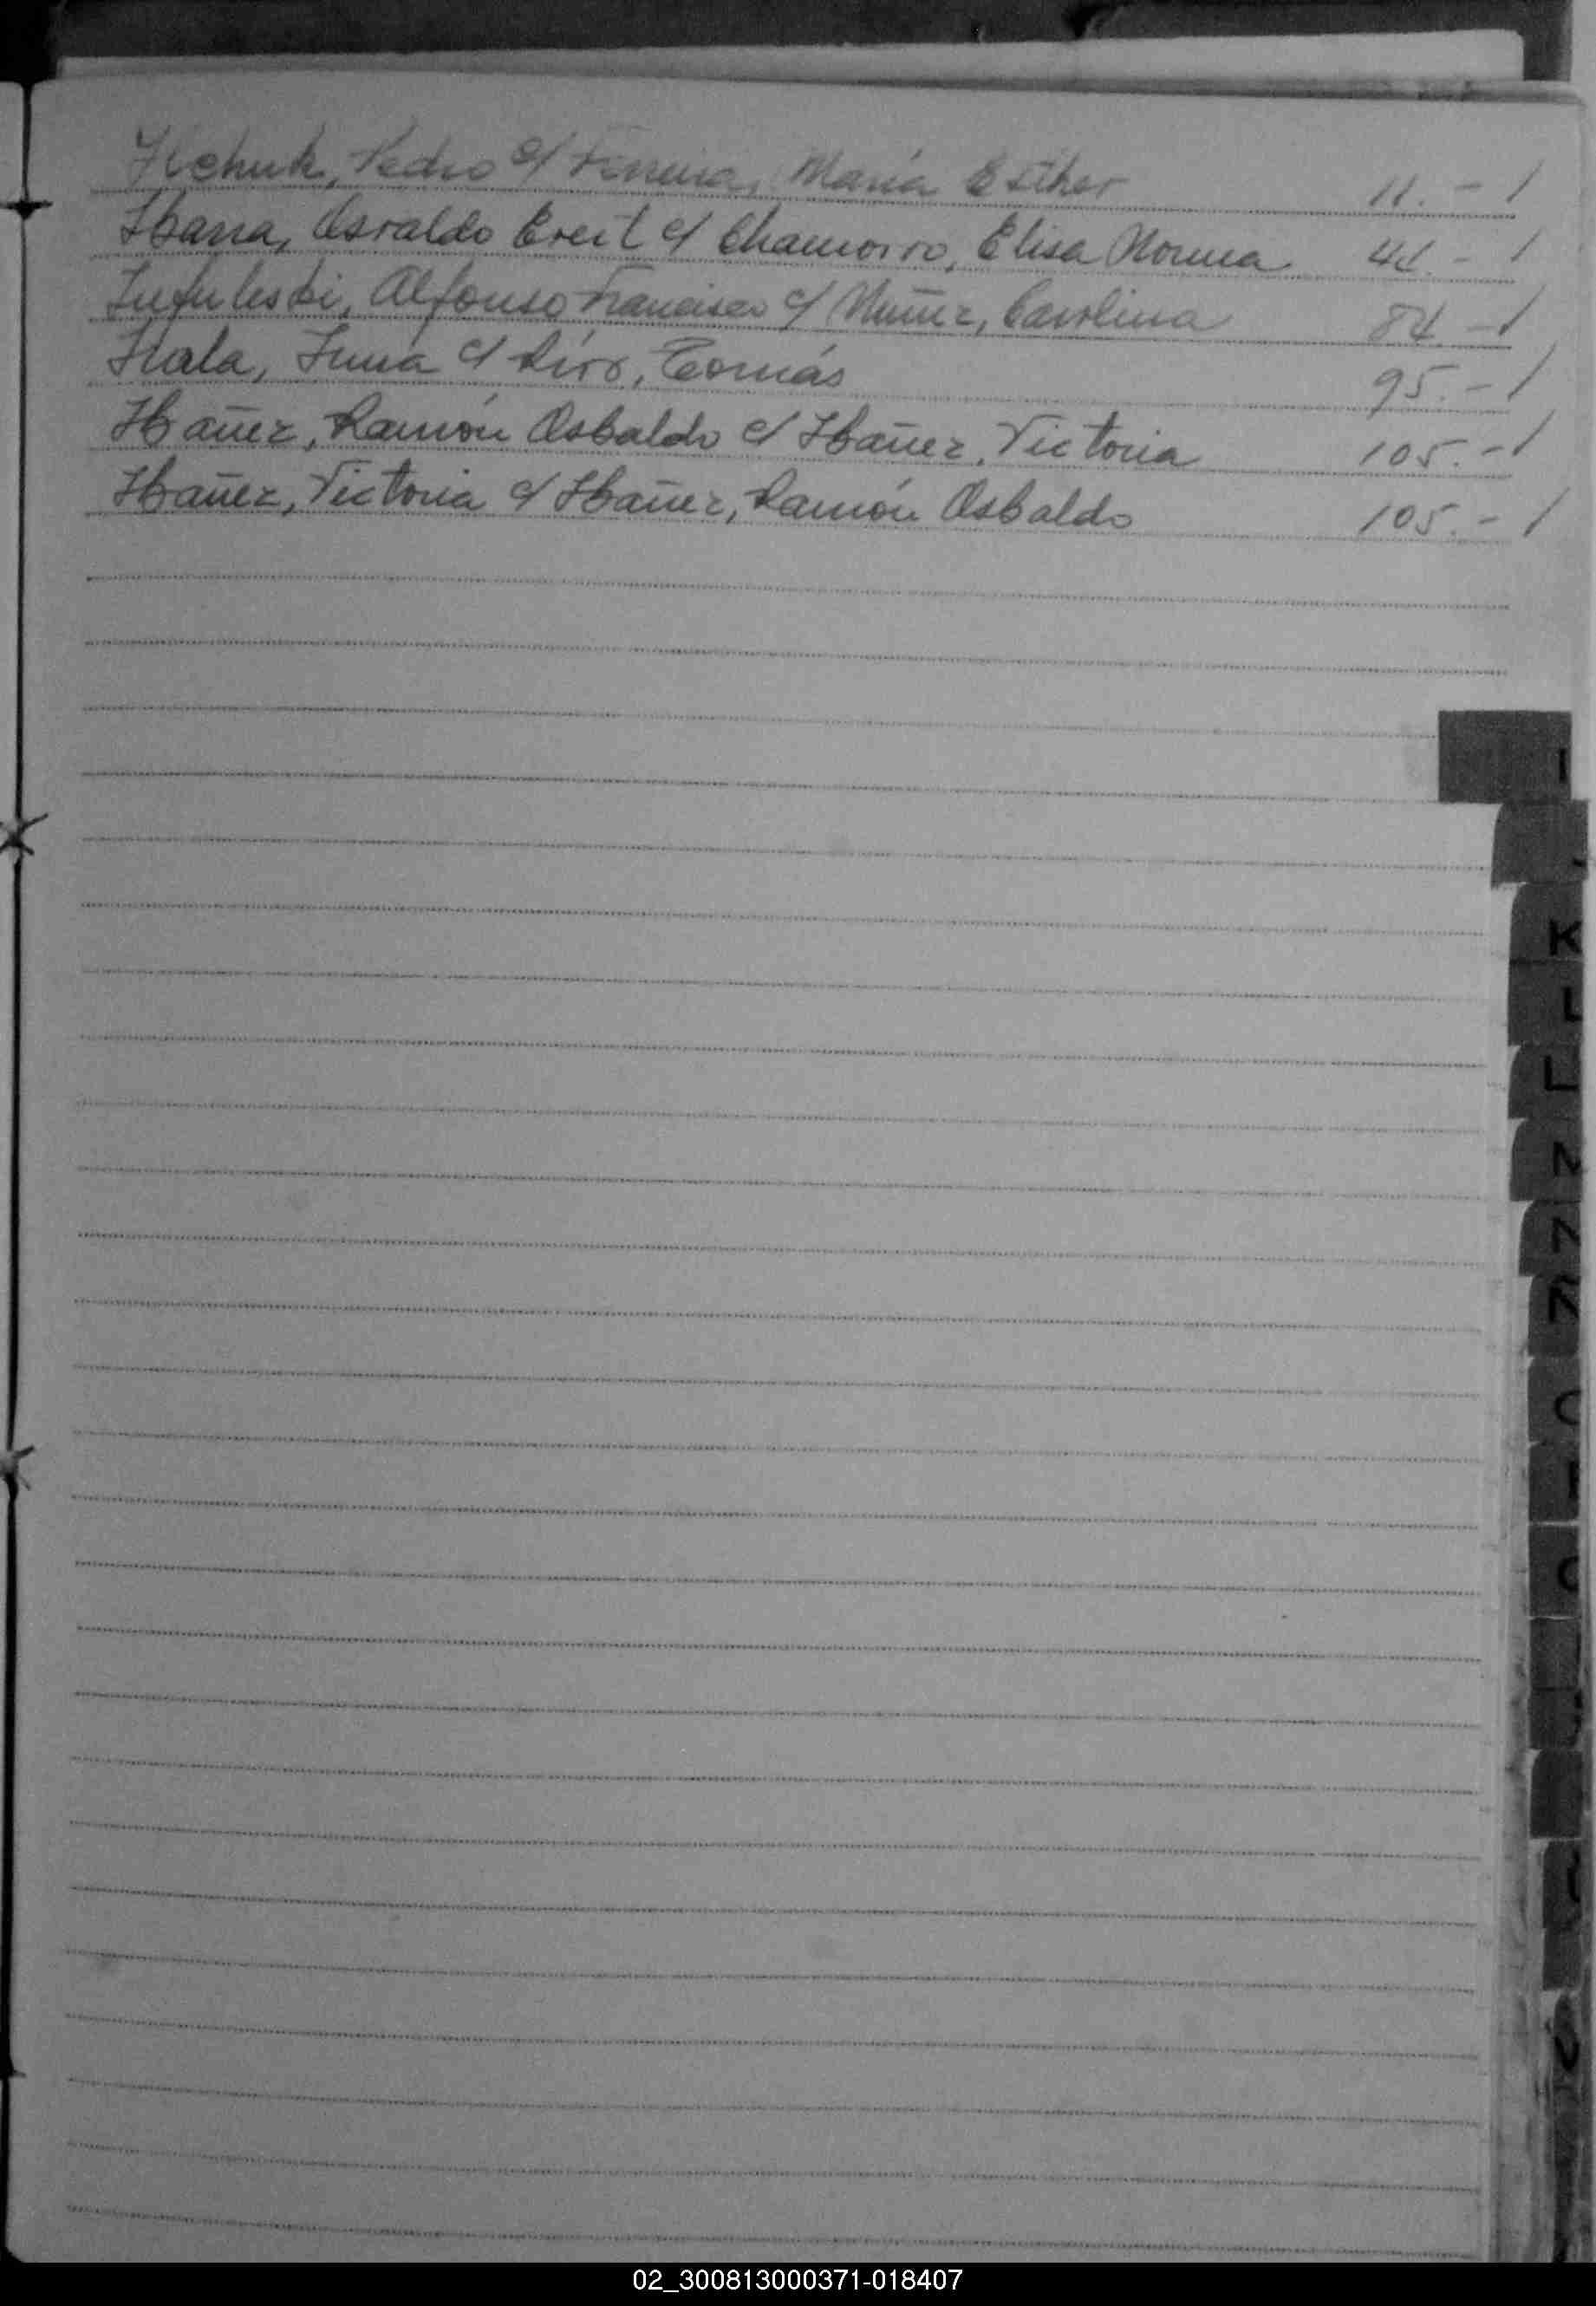 Ilchuk, Pedro c/ Ferreira, María Esther 11.- /
Ibarra, Osvaldo Ereil c/ Chamorro, Elisa Norma 41.- /
Alfonso Francisco c/ Muñiz, Carolina 84.- /
Irala, Irma c/ Tomás 95.- /
Ibañez, Ramón Osbaldo c/ Ibañez, Victoria 105.- /
Ibañez, Victoria c/ Ibañez, Ramón Osbaldo 105.- /
I
K
L
L
N
02_300813000371-018407